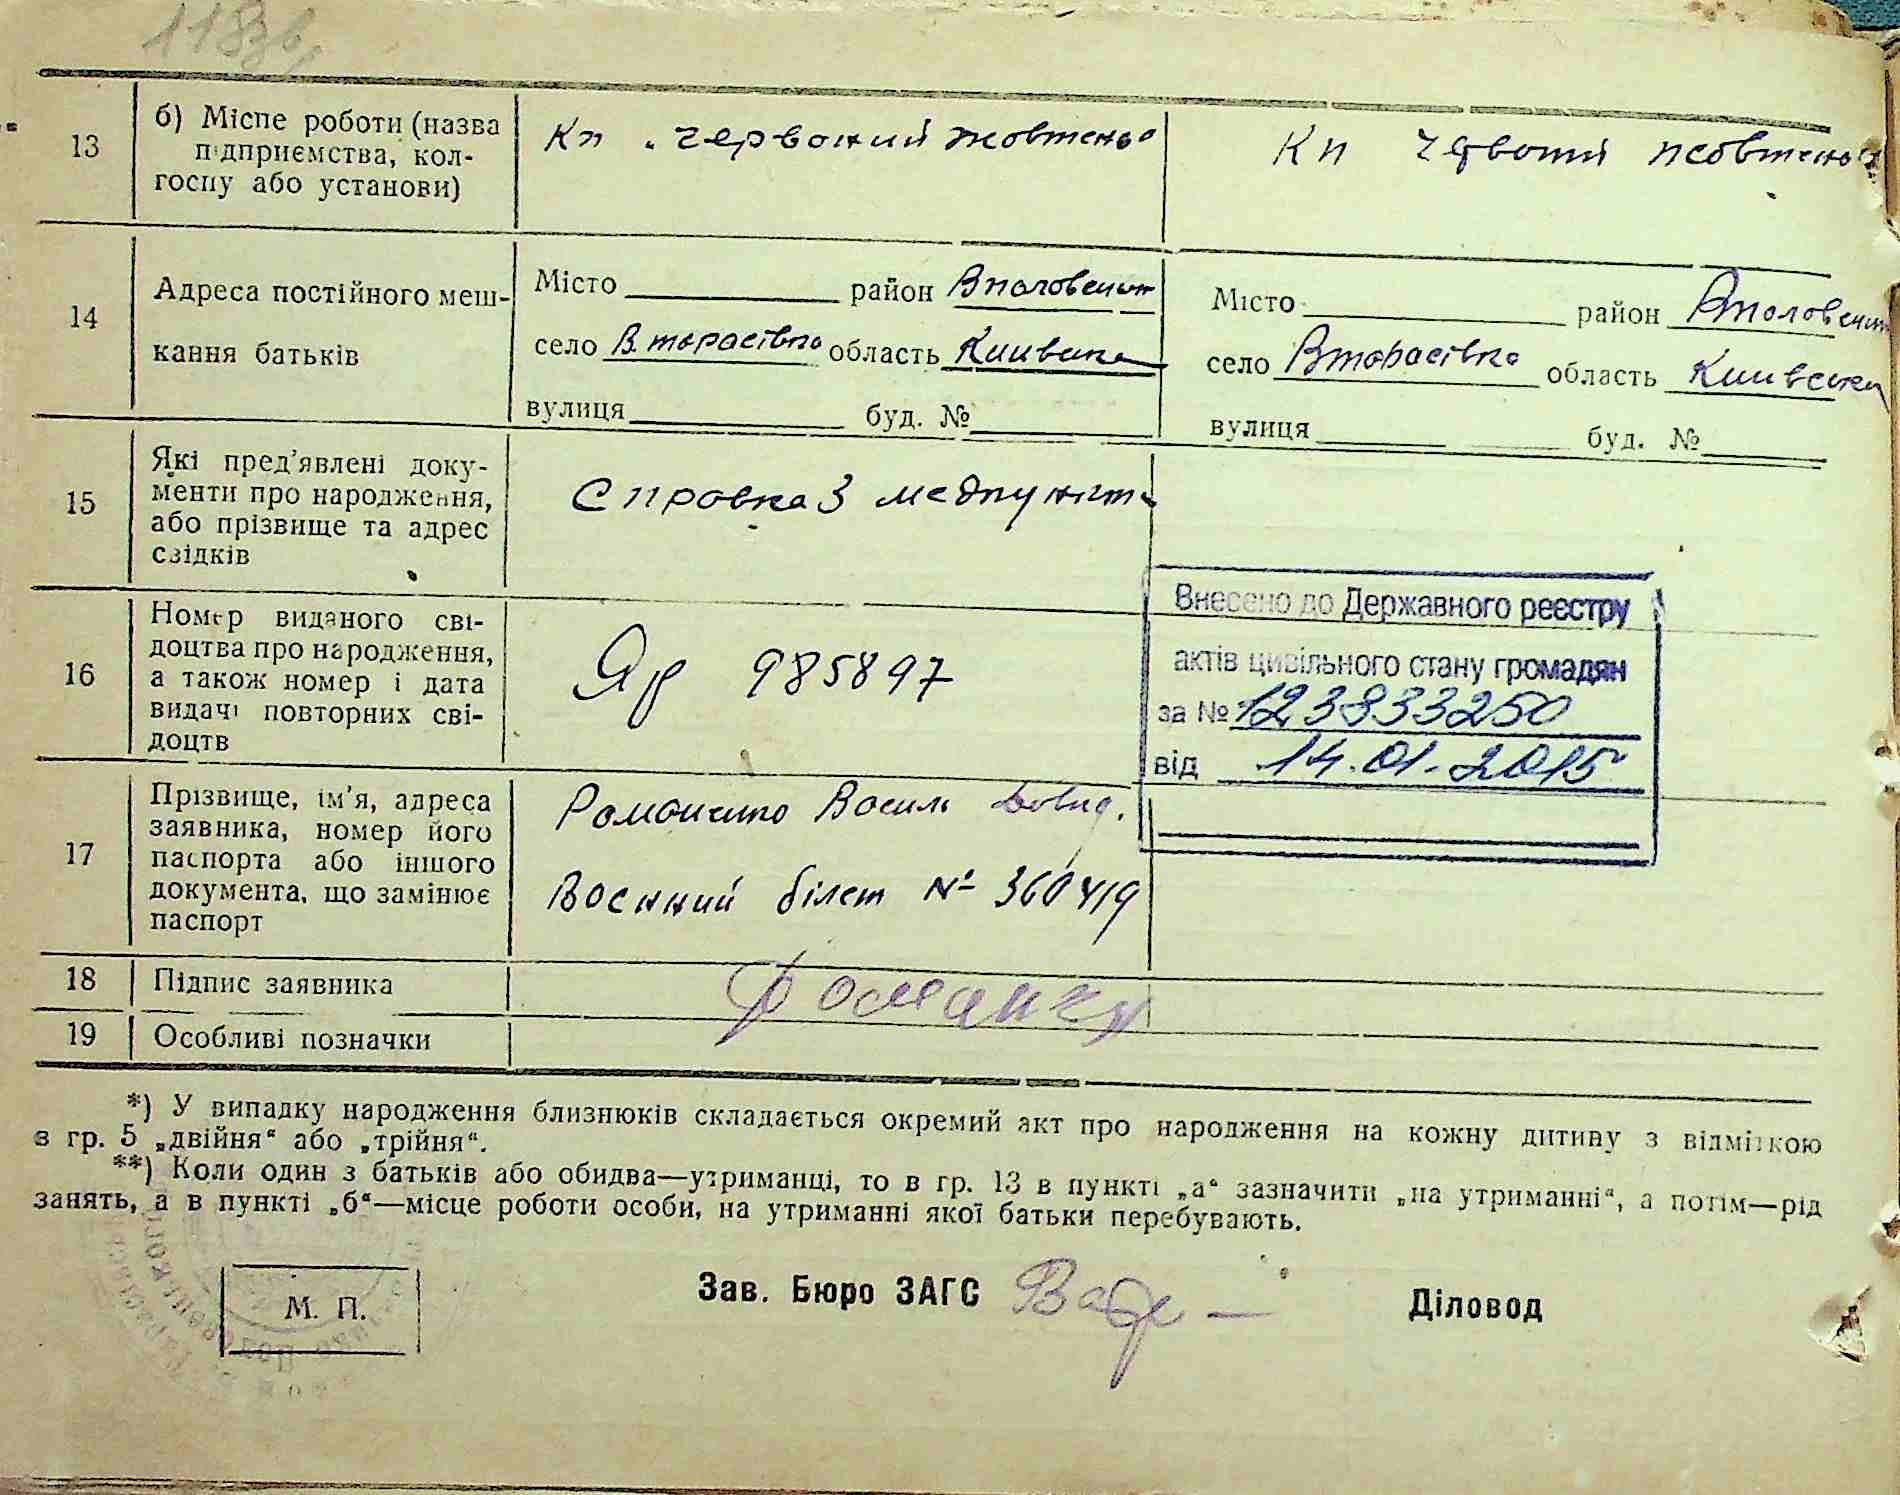 118зв
13
б) Місце роботи (назва
підприємства, кол-
госпу або установи)
Кп „Червоний жовтень"
Кп Червоний жовтень
14
Адреса постійного меш-
кання батьків
Місто район Вполовецьк
село В.тарасівка область Київська
вулиця буд. №
Місто район Вполовецьк
село Втарасівка область Київська
вулиця буд. №
15
Які пред'явлені доку-
менти про народження,
або прізвище та адрес
свідків
Справка з медпункт
16
Номер виданого сві-
доцтва про народження,
а також номер і дата
видачі повторних сві-
доцтв
Яр 985897
Внесено до Державного реєстру
актів цивільного стану громадян
за № 123833250
від 14.01.2015
17
Прізвище, ім'я, адреса
заявника, номер його
паспорта або іншого
документа, що замінює
паспорт
Романенко Василь Давид.
Воєнний білет № 360419
18
Підпис заявника
19
Особливі позначки
*) У випадку народження близнюків складається окремий акт про народження на кожну дитину з відміткою
в гр. 5 „двійня“ або „трійня“.
**) Коли один з батьків або обидва—утриманці, то в гр. 13 в пункті „а“ зазначити „на утриманні“, а потім—рід
занять, а в пункті „б“—місце роботи особи, на утриманні якої батьки перебувають.
М. П.
Зав. Бюро ЗАГС
Діловод